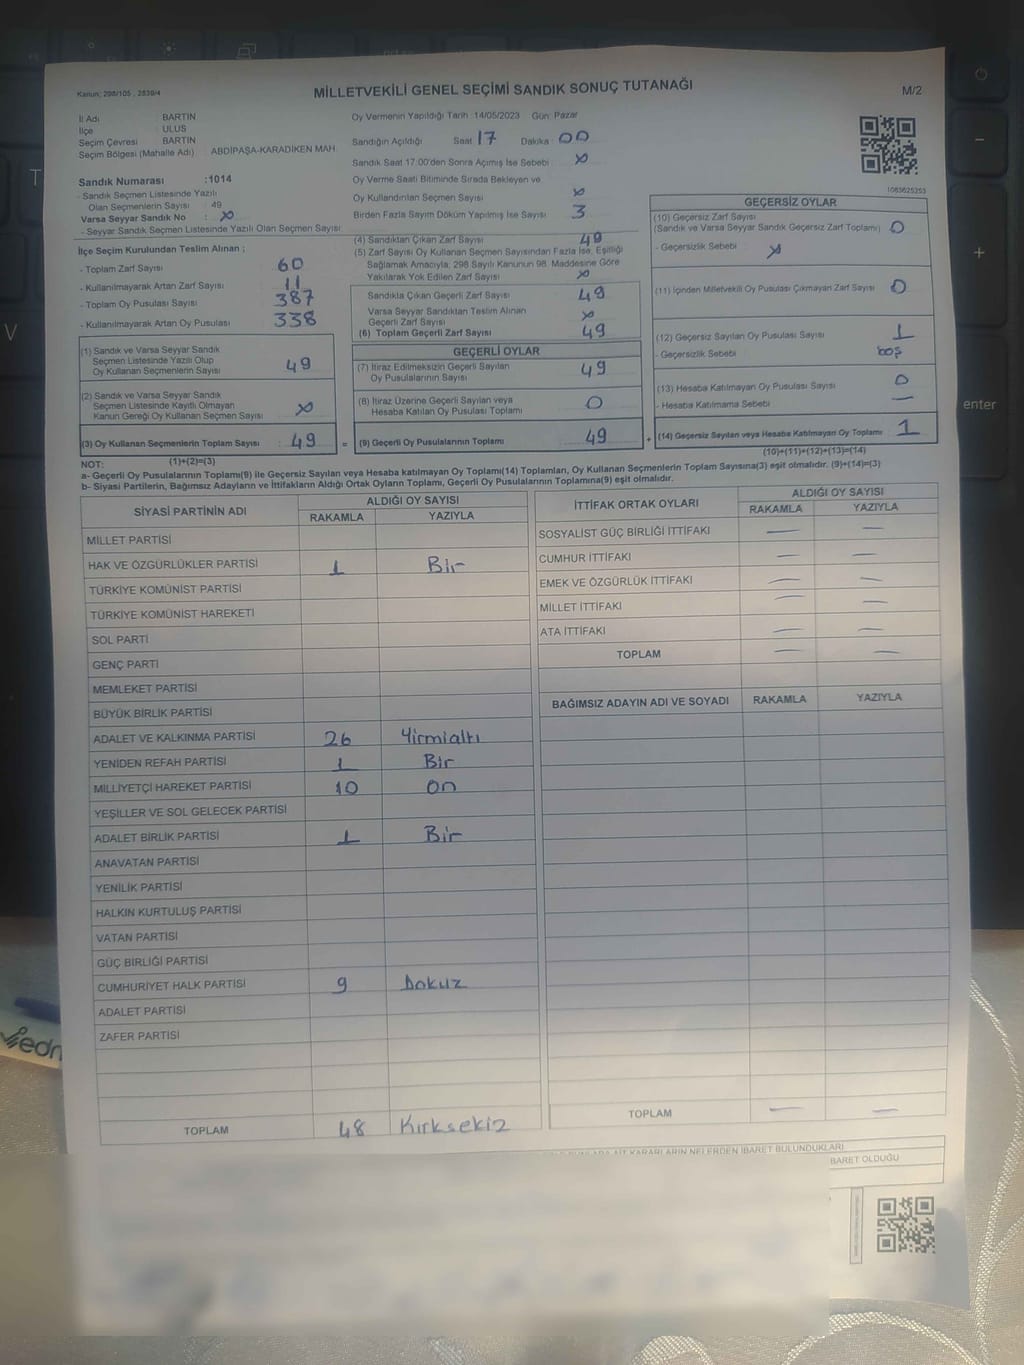 Kanun: 298/105 , 2839/4
MİLLETVEKİLİ GENEL SEÇİMİ SANDIK SONUÇ TUTANAĞI
M/2
İl Adı : BARTIN
İlçe : ULUS
Seçim Çevresi : BARTIN
Seçim Bölgesi (Mahalle Adı) : ABDİPAŞA-KARADİKEN MAH.
Sandık Numarası :1014
- Sandık Seçmen Listesinde Yazılı
Olan Seçmenlerin Sayısı : 49
Varsa Seyyar Sandık No : x
- Seyyar Sandık Seçmen Listesinde Yazılı Olan Seçmen Sayısı:
Oy Vermenin Yapıldığı Tarih :14/05/2023 Gün: Pazar
Sandığın Açıldığı Saat 17 Dakika : 00
Sandık Saat 17:00'den Sonra Açılmış İse Sebebi : x
Oy Verme Saati Bitiminde Sırada Bekleyen ve
Oy Kullandırılan Seçmen Sayısı x
Birden Fazla Sayım Döküm Yapılmış İse Sayısı : 3
1083625253
İlçe Seçim Kurulundan Teslim Alınan ;
- Toplam Zarf Sayısı : 60
- Kullanılmayarak Artan Zarf Sayısı : 11
- Toplam Oy Pusulası Sayısı : 387
- Kullanılmayarak Artan Oy Pusulası : 338
(1) Sandık ve Varsa Seyyar Sandık
Seçmen Listesinde Yazılı Olup
Oy Kullanan Seçmenlerin Sayısı : 49
(2) Sandık ve Varsa Seyyar Sandık
Seçmen Listesinde Kayıtlı Olmayan
Kanun Gereği Oy Kullanan Seçmen Sayısı : x
(3) Oy Kullanan Seçmenlerin Toplam Sayısı : 49
(1)+(2)=(3)
(4) Sandıktan Çıkan Zarf Sayısı : 49
(5) Zarf Sayısı Oy Kullanan Seçmen Sayısından Fazla İse, Eşitliği
Sağlamak Amacıyla, 298 Sayılı Kanunun 98. Maddesine Göre
Yakılarak Yok Edilen Zarf Sayısı : x
Sandıkta Çıkan Geçerli Zarf Sayısı : 49
Varsa Seyyar Sandıktan Teslim Alınan
Geçerli Zarf Sayısı : x
(6) Toplam Geçerli Zarf Sayısı : 49
GEÇERLİ OYLAR
(7) İtiraz Edilmeksizin Geçerli Sayılan
Oy Pusulalarının Sayısı : 49
(8) İtiraz Üzerine Geçerli Sayılan veya
Hesaba Katılan Oy Pusulası Toplamı : 0
= (9) Geçerli Oy Pusulalarının Toplamı : 49
GEÇERSİZ OYLAR
(10) Geçersiz Zarf Sayısı
(Sandık ve Varsa Seyyar Sandık Geçersiz Zarf Toplamı) : 0
- Geçersizlik Sebebi : x
(11) İçinden Milletvekili Oy Pusulası Çıkmayan Zarf Sayısı : 0
(12) Geçersiz Sayılan Oy Pusulası Sayısı : 1
- Geçersizlik Sebebi : boş
(13) Hesaba Katılmayan Oy Pusulası Sayısı : 0
- Hesaba Katılmama Sebebi : —
+ (14) Geçersiz Sayılan veya Hesaba Katılmayan Oy Toplamı : 1
(10)+(11)+(12)+(13)=(14)
NOT:
a- Geçerli Oy Pusulalarının Toplamı(9) ile Geçersiz Sayılan veya Hesaba katılmayan Oy Toplamı(14) Toplamları, Oy Kullanan Seçmenlerin Toplam Sayısına(3) eşit olmalıdır. (9)+(14)=(3)
b- Siyasi Partilerin, Bağımsız Adayların ve İttifakların Aldığı Ortak Oyların Toplamı, Geçerli Oy Pusulalarının Toplamına(9) eşit olmalıdır.
SİYASİ PARTİNİN ADI ALDIĞI OY SAYISI
RAKAMLA YAZIYLA
MİLLET PARTİSİ
HAK VE ÖZGÜRLÜKLER PARTİSİ 1 Bir
TÜRKİYE KOMÜNİST PARTİSİ
TÜRKİYE KOMÜNİST HAREKETİ
SOL PARTİ
GENÇ PARTİ
MEMLEKET PARTİSİ
BÜYÜK BİRLİK PARTİSİ
ADALET VE KALKINMA PARTİSİ 26 Yirmialtı
YENİDEN REFAH PARTİSİ 1 Bir
MİLLİYETÇİ HAREKET PARTİSİ 10 On
YEŞİLLER VE SOL GELECEK PARTİSİ
ADALET BİRLİK PARTİSİ 1 Bir
ANAVATAN PARTİSİ
YENİLİK PARTİSİ
HALKIN KURTULUŞ PARTİSİ
VATAN PARTİSİ
GÜÇ BİRLİĞİ PARTİSİ
CUMHURİYET HALK PARTİSİ 9 Dokuz
ADALET PARTİSİ
ZAFER PARTİSİ
TOPLAM 48 Kırksekiz
İTTİFAK ORTAK OYLARI ALDIĞI OY SAYISI
RAKAMLA YAZIYLA
SOSYALİST GÜÇ BİRLİĞİ İTTİFAKI — —
CUMHUR İTTİFAKI — —
EMEK VE ÖZGÜRLÜK İTTİFAKI — —
MİLLET İTTİFAKI — —
ATA İTTİFAKI — —
TOPLAM — —
BAĞIMSIZ ADAYIN ADI VE SOYADI RAKAMLA YAZIYLA
TOPLAM — —
KARARLARIN NELERDEN İBARET BULUNDUKLARI
BARET OLDUĞU
enter
T
V